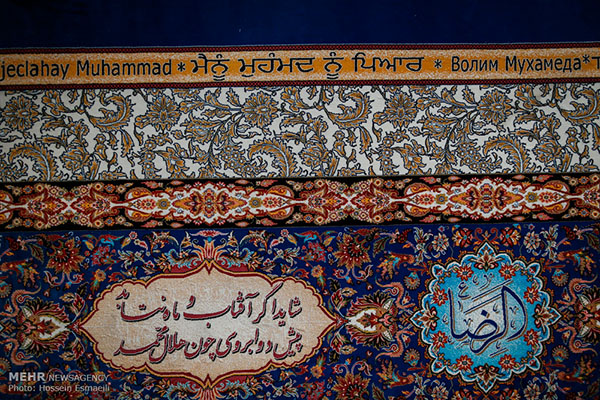 jeclahay Muhammad * ਮੈਨੂੰ ਮੁਹੰਮਦ ਨੂੰ ਪਿਆਰ * Волим Мухамеда*
شاید اگر آفتاب و ماه نتابد
پیش دو ابروی چون هلال محمد
الرضا ع
MEHR NEWSAGENCY
Photo: Hossein Esmaeili